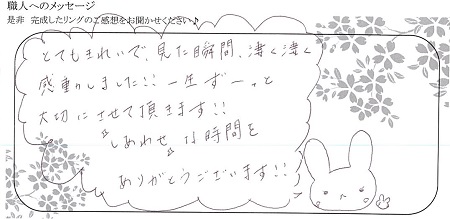 職人へのメッセージ
是非 完成したリングのご感想をお聞かせください♪
とてもきれいで、見た瞬間、凄く凄く
感動しました!! 一生ずーっと
大切にさせて頂きます!!
"しあわせ"な時間を
ありがとうございます!!